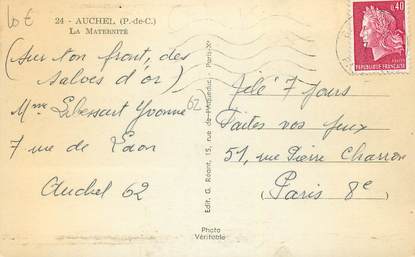 24 - AUCHEL (P.-de-C.)
LA MATERNITÉ
(Sur ton front, des
salves d'or)
Mme Yvonne 62
7 rue de
Auchel 62
Edit. G. Réant, 15, rue de l'Aqueduc - Paris-Xe
Photo
Véritable
0,40
REPUBLIQUE FRANÇAISE
Télé 7 Jours
Faites vos jeux
51, rue Pierre Charron
Paris 8e